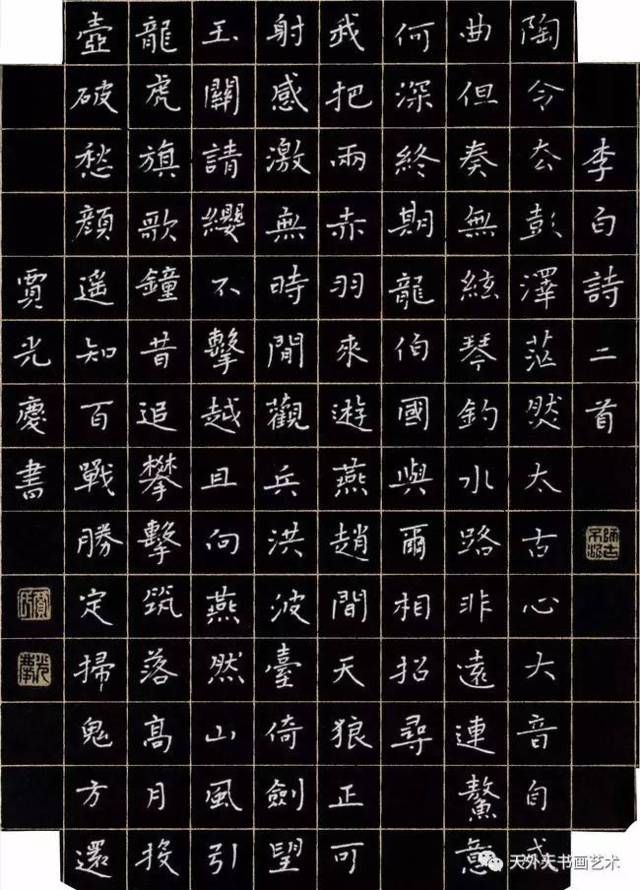 李白詩二首
陶令去彭澤茫然太古心大音自成
曲但奏無絃琴釣水路非遠連鰲意
何深終期龍伯國與爾相招尋
我把兩赤羽來遊燕趙間天狼正可
射感激無時閒觀兵洪波臺倚劍望
玉關請纓不擊越且向燕然山風引
龍虎旗歌鐘昔追攀擊筑落高月投
壺破愁顏遥知百戰勝定掃鬼方還
賈光慶書
天外天书画艺术